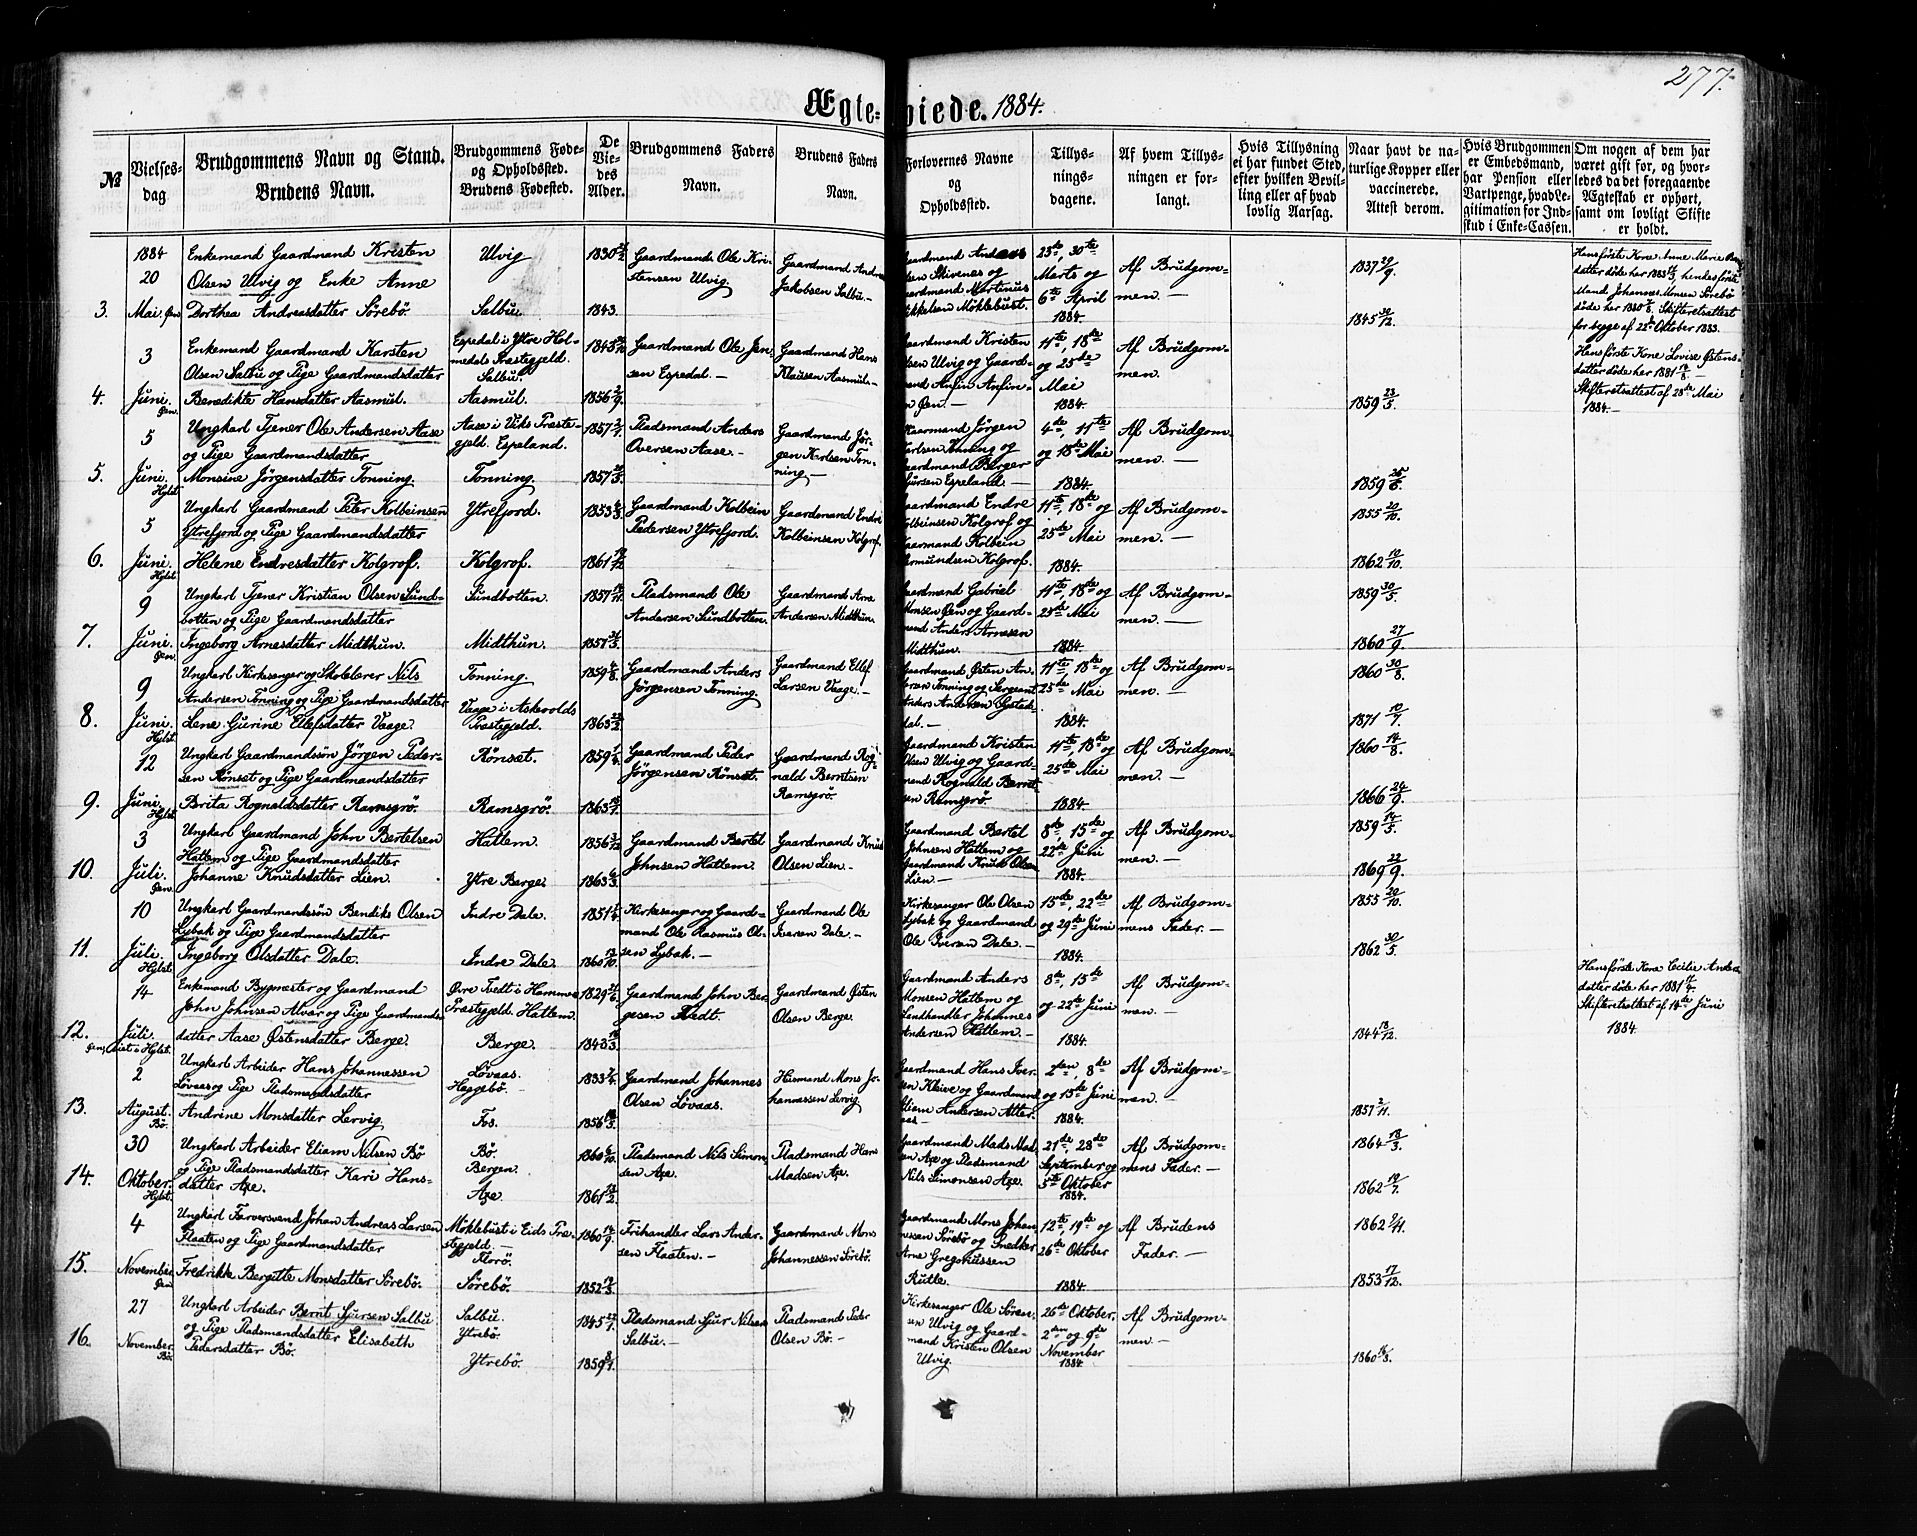 277.
Ægteviede. 1884.
№
Vielses-dag
Brudgommens Navn og Stand. Brudens Navn.
Brudgommens Føde- og Opholdssted. Brudens Fødested.
De Viedes Alder.
Brudgommens Faders Navn.
Brudens Faders Navn.
Forlovernes Navne og Opholdssted.
Tillysningsdagene.
Af hvem Tillysningen er forlangt.
Hvis Tillysning ei har fundet Sted, efter hvilken Bevilling eller af hvad lovlig Aarsag.
Naar havt de naturlige Kopper eller vaccinerede. Attest derom.
Hvis Brudgommen er Embedsmand, har Pension eller Vartpenge, hvad Legitimation for Indskud i Enke-Cassen.
Om nogen af dem har været gift før, og hvorledes da det foregaaende Ægteskab er ophørt, samt om lovligt Skifte er holdt.
3.
1884 20 Mai. Øen
Enkemand Gaardmand Kristen
Olsen Ulvig og Enke Anne
Dorthea Andreasdatter Sørebø.
Ulvig
Salbu.
1843.
Gaardmand Ole Kristensen Ulvig.
Jakobsen Salbu.-
23de, 30te
Marts og
6te April
1884.
Af Brudgommen.-
1837 29/9.
1845 30/12.
4.
3 Juni. Øen.
Enkemand Gaardmand Karsten
Olsen Salbu og Pige Gaardmandsdatter
Benedikte Hansdatter Aasmul.
Espedal i Ytre Holmedals Præstegjeld.
Salbu.
Aasmul.
1856 2/9.
Gaardmand Ole Jensen Espedal.-
Gaardmand Hans
Klausen Aasmul.-
11te, 18de
og 25de
Mai
1884.
Af Brudgommen.
1859 23/5.
Hans første Kone Lovise Østensdatter døde her 1881
Skifteretsattest af 28de Mai
1884.-
5.
5 Juni. Hylst.
Ungkarl Tjener Ole Andersen Aase
og Pige Gaardmandsdatter
Monsine Jørgensdatter Tonning.
Aase i Viks Præstegjeld. Espeland.
Tonning.
Pladsmand Anders
Oversen Aase.-
Gaardmand Jørgen Karlsen Tonning.-
4de, 11te
og 18de Mai
1884.
Af Brudgommen.-
6.
5 Juni. Hylst.
Ungkarl Gaardmand Peter Kolbeinsen
Ytrefjord og Pige Gaardmandsdatter
Helene Endresdatter Kolgrof.
Ytrefjord.
Kolgrof.
Gaardmand Kolbein
Pedersen Ytrefjord.
Gaardmand Endre
Kolbeinsen Kolgrof.
11te, 18de og
25de Mai
1884.
Af Brudgommen.-
1855 20/10.
1862 10/10.
7.
9 Juni. Øen.
Ungkarl Tjener Kristian Olsen Sundbotten og Pige Gaardmandsdatter
Ingeborg Arnesdatter Midthun.
Sundbotten.
Midthun.
Pladsmand Ole
Andersen Sundbotten.
Gaardmand Arne
Andersen Midthun.
11te, 18de og
25de Mai
1884.
Af Brudgommen.-
1859 30/5.
1860 27/9.
8.
9 Juni. Hylst.
Ungkarl Kirkesanger og Skolelærer Nils
Andersen Tonning og Pige Gaardmandsdatter
Lene Gurine Ellefsdatter Vaage.
Tonning.
Vaage i Askvolds
Præstegjeld.
Gaardmand Anders
Jørgensen Tonning.
Gaardmand Ellef
Larsen Vaage.-
11te, 18de og
25de Mai
1884.
Af Brudgommen.-
1860 30/8.
1871 10/7.
9.
12 Juni. Hylst.
Ungkarl Gaardmandssøn Jørgen Pedersen Rønset og Pige Gaardmandsdatter
Brita Rognaldsdatter Ramsgrø.
Rønset.
Ramsgrø.
Gaardmand Peder
Jørgensen Rønset.
Gaardmand Rognald Berntsen
Ramsgrø.
Gaardmand Kristen
Olsen Ulvig og Gaardmand Rognald Berntsen Ramsgrø.
11te, 18de og
25de Mai
1884.
Af Brudgommen.-
1860 14/8.
1866 24/9.
10.
3 Juli. Øen.
Ungkarl Gaardmand John Bertelsen
Hatlem og Pige Gaardmandsdatter
Johanne Knudsdatter Lien.
Hatlem.
Ytre Berge.
Gaardmand Bertel
Johnsen Hatlem.
Gaardmand Knud
Olsen Lien.-
Gaardmand Bertel
Johnsen Hatlem og
Gaardmand Knud Olsen
Lien.-
8de, 15de og
22de Juni
1884.
Af Brudgommen.-
1859 14/5.
1869 22/9.
11.
10 Juli. Hylst.
Ungkarl Gaardmandssøn Bendiks Olsen
Lybak og Pige Gaardmandsdatter
Ingeborg Olsdatter Dale.
Indre Dale.
Indre Dale.
Kirkesanger og Gaardmand Ole Rasmus Olsen Lybak.-
Gaardmand Ole
Iversen Dale.-
Kirkesanger Ole Olsen
Lybak og Gaardmand
Ole Iversen Dale.-
15de, 22de
og 29de Juni
1884.
Af Brudgommens Fader.-
1855 20/10.
1862 30/5.
12.
14 Juli.
Enkemand Bygmester og Gaardmand
John Johnsen Alvar og Pige Gaardmandsdatter Aase Østensdatter Berge.
Øvre Tvedt i Hammer
Præstegjeld. Hatlem.
Berge.
Gaardmand John Bergesen Tvedt.
Gaardmand Østen
Olsen Berge.
Gaardmand Anders
Monsen Hatlem og
Landhandler Johannes
Andersen Hatlem.-
8de, 15de
og 22de Juni
1884.
Af Brudgommen.-
1844 18/12.
Hans første Kone Cecilie Andersdatter døde her 1881
Skifteretsattest af 14de Juni
1884.
13.
2 August. Bø.
Ungkarl Arbeider Hans Johannessen
Løvaas og Pige Pladsmandsdatter
Andrine Monsdatter Lervig
Løvaas.
Haggebø.-
Fos.
Gaardmand Johannes
Olsen Løvaas.
Husmand Mons Johannessen Lervig
2den, 8de
og 15de Juni
1884.
Af Brudgommen.-
1857 2/11.
14.
30 Oktober. Hylst.
Ungkarl Arbeider Eliam Nilsen Bø
og Pige Pladsmandsdatter Kari Hansdatter Axe.
Bø.
Bergen.
Axe.
Pladsmand Nils Simonsen Axe.
Pladsmand Hans
Madsen Axe.
Nils Simonsen Axe.
21de, 28de
September og
5te Oktober
1884.
Af Brudgommens Fader.-
1864 18/3.
1862 19/7.
15.
4 November. Øen
Ungkarl Farversvend Johan Andreas Larsen
Flaaten og Pige Gaardmandsdatter
Fredrikke Bergitte Monsdatter Sørebø.
Møklebust i Eids Præstegjeld.
Florø.
Sørebø.
Frihandler Lars Andersen Flaaten.-
Gaardmand Mons
Johannessen Sørebø.
Gaardmand Mons Johannessen Sørebø og Snedker
Arne Gregoriussen
Rutle.
12te, 19de og
26de Oktober
1884.
Af Brudens
Fader.-
1862 9/11.
1853 17/12.
16.
27 November. Bø.
Ungkarl Arbeider Bernt Sjursen Salbu
og Pige Pladsmandsdatter Elisabeth
Pedersdatter Bø.
Salbu.
Ytrebø.
Ytrebø.
Pladsmand Sjur Nilsen
Salbu.-
Pladsmand Peder
Olsen Bø.-
Kirkesanger Ole Sørensen Ulvig og Gaardmand Kristen Olsen
Ulvig.
26de Oktober.
2den og 9de
November
1884.
Af Brudgommen.-